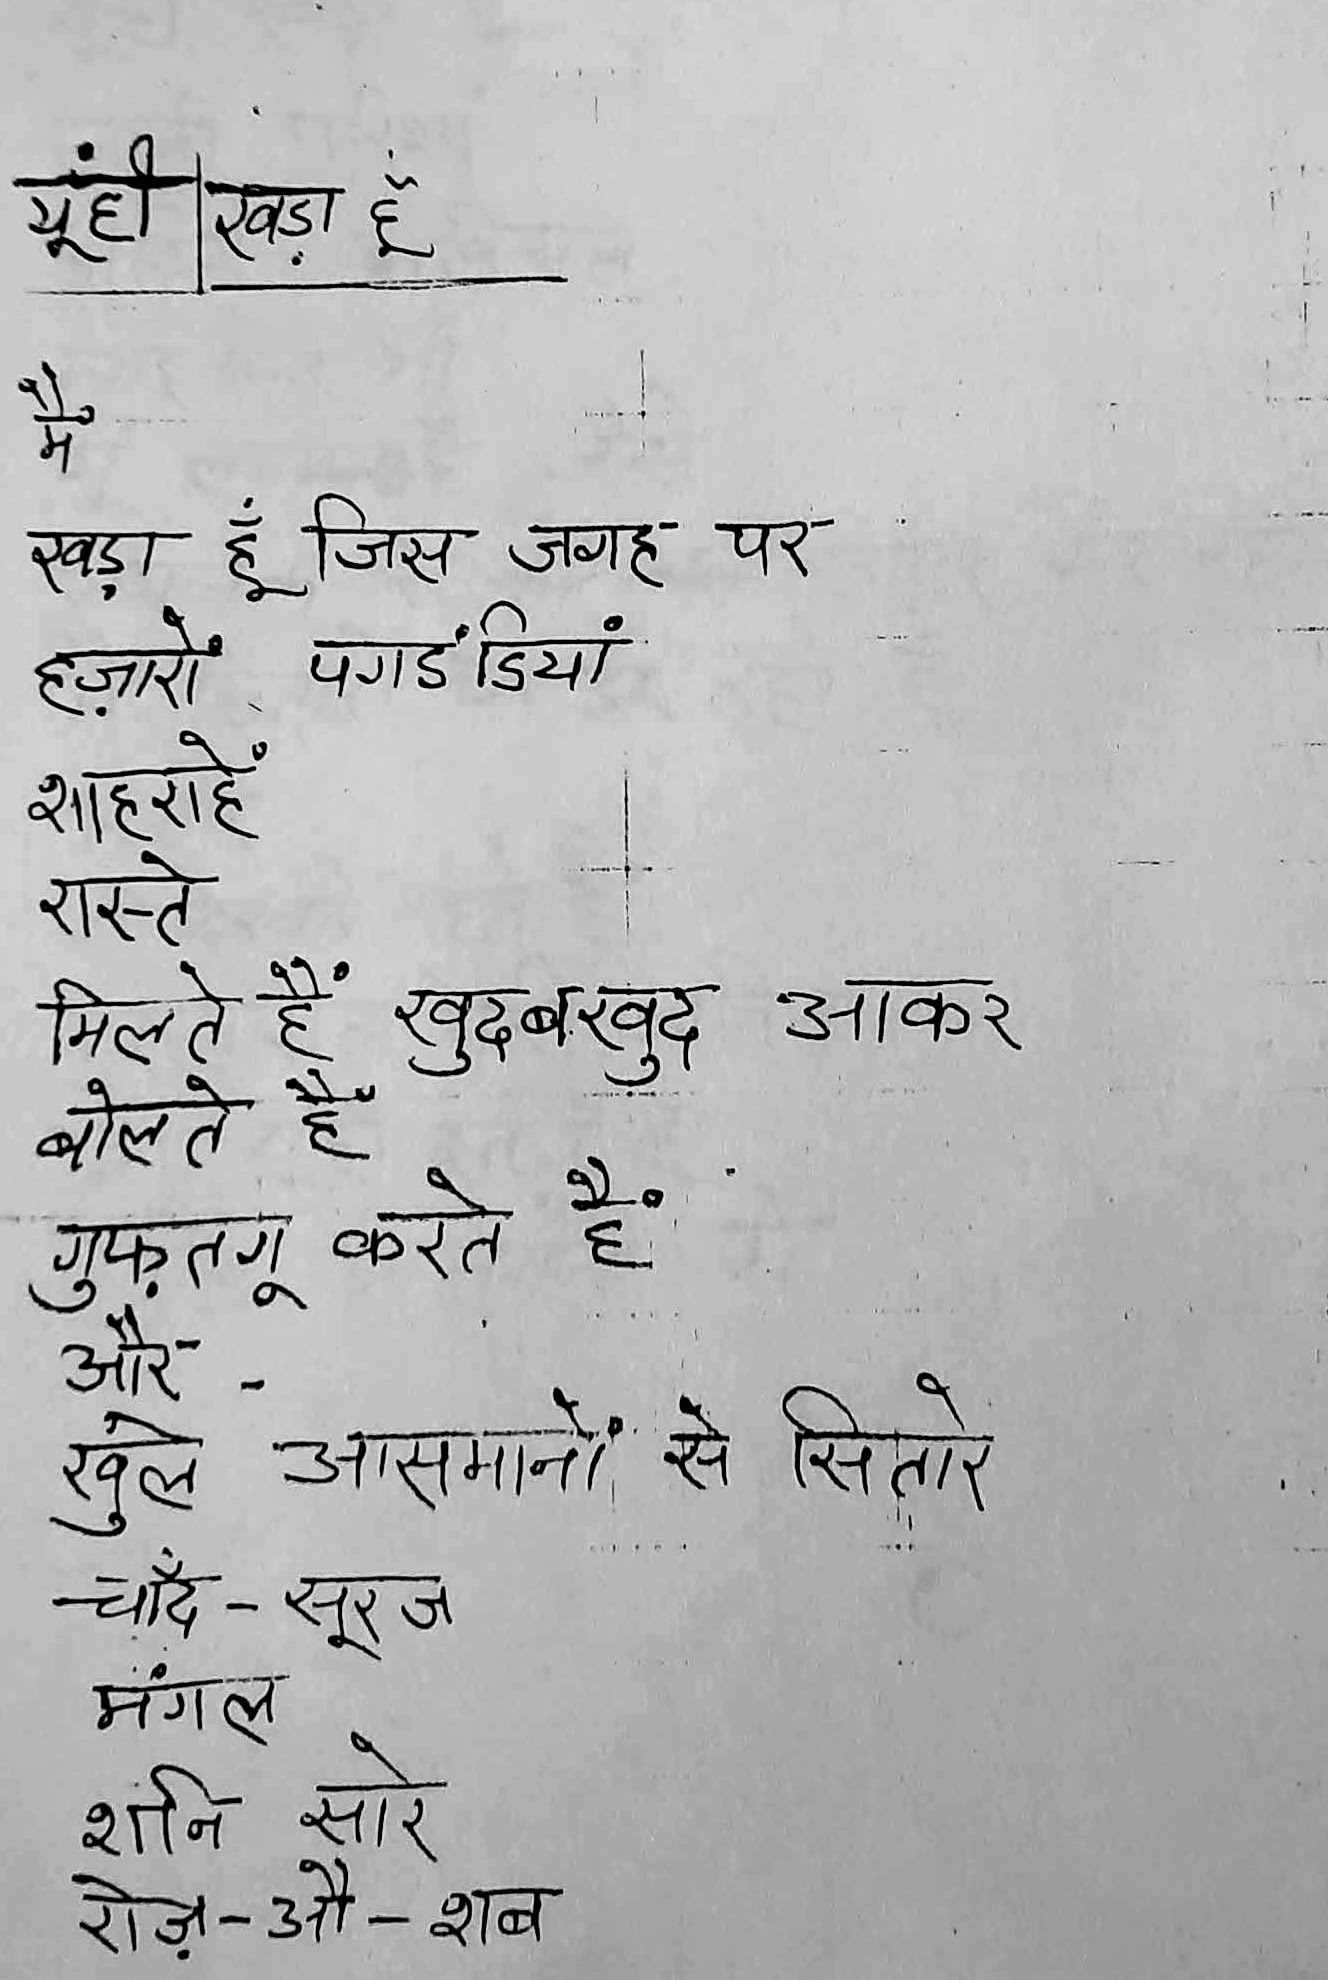 यूंही | खड़ा हूँ
मैं
खड़ा हूँ जिस जगह पर
हज़ारों पगडंडियां
शाहराहें
रास्ते
मिलते हैं खुदबखुद आकर
बोलते हैं
गुफ़तगू करते हैं
और -
खुले आसमानों से सितारे
चाँद - सूरज
मंगल
शनि सारे
रोज़ - औ - शब